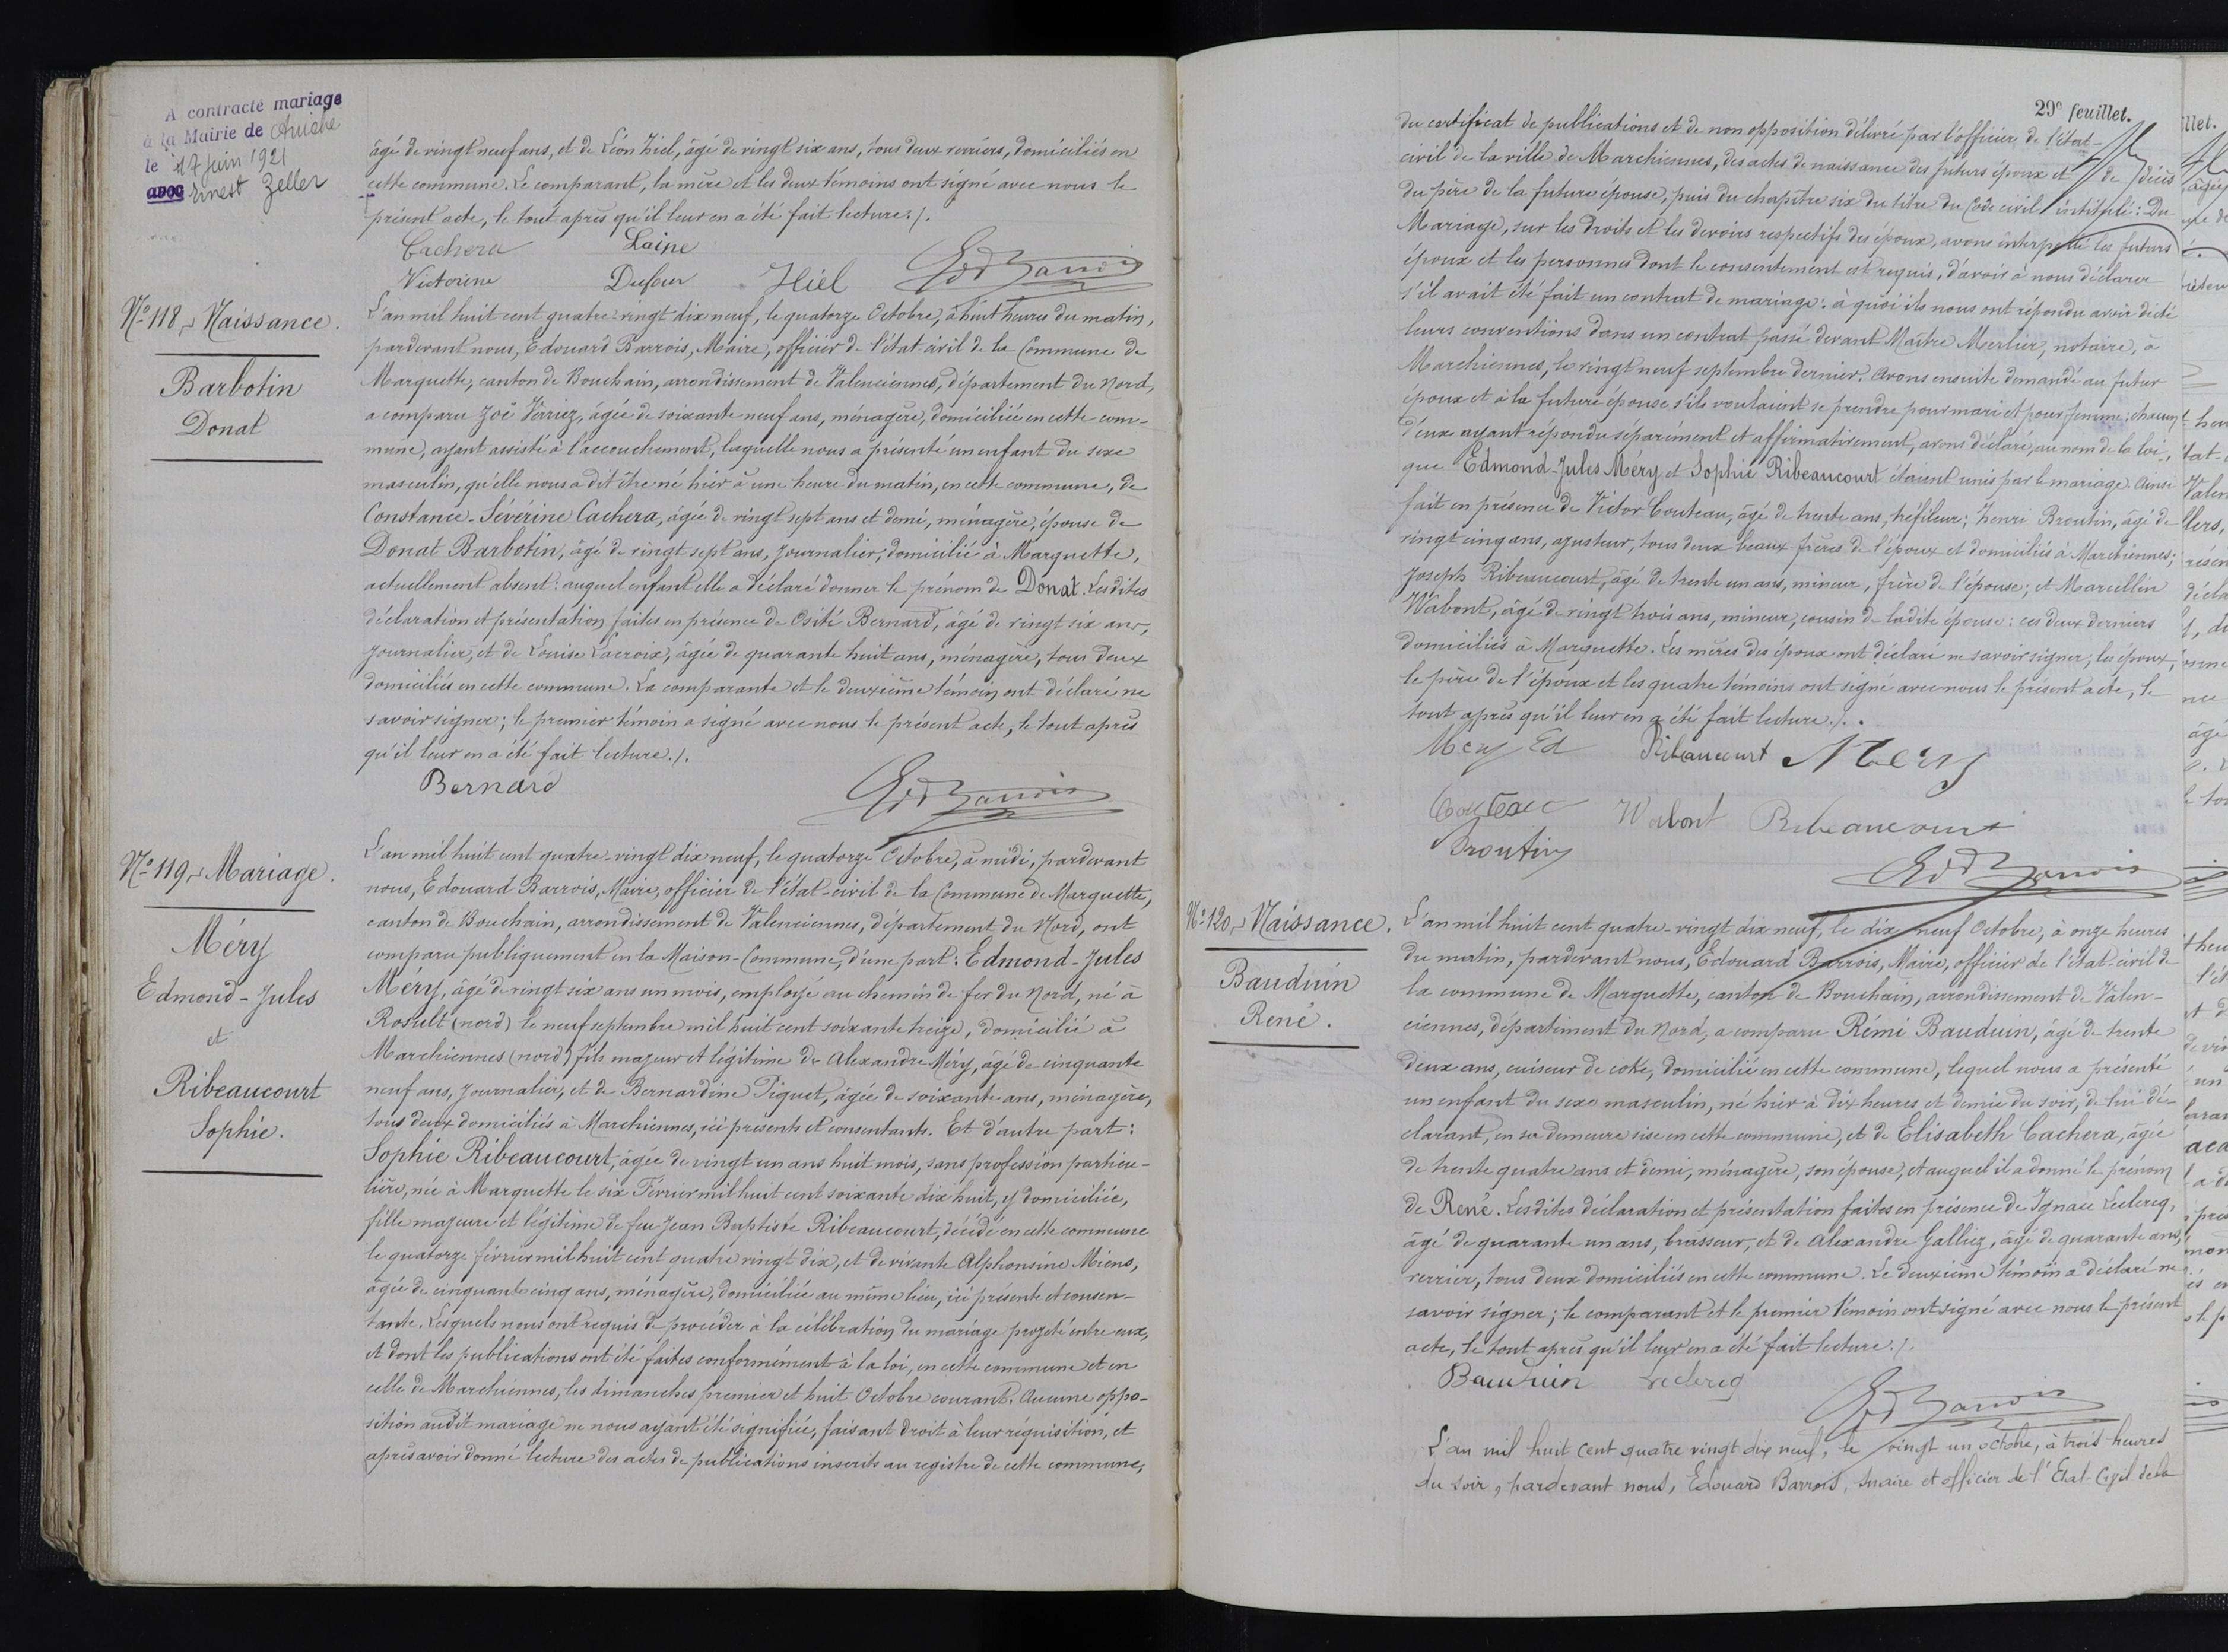 A contracté mariage
à la Mairie de Aniche
le 17 juin 1921
avec Ernest Zeller
âgé de vingt neuf ans, et de Léon Hiel, âgé de vingt six ans, tous deux verriers, domiciliés en
cette commune. Le comparant, la mère et les deux témoins ont signé avec nous le
présent acte, le tout après qu'il leur en a été fait lecture./.
Cachera Laine
Victorine Dufour Hiél Ed Barrois
N° 118 Naissance.
Barbotin
Donat
L'an mil huit cent quatre vingt dix neuf, le quatorze Octobre, à huit heures du matin,
pardevant nous, Edouard Barrois, Maire, officier de l'état-civil de la Commune de
Marquette, canton de Bouchain, arrondissement de Valenciennes, département du Nord,
a comparu Zoé Verriez, âgée de soixante neuf ans, ménagère, domiciliée en cette com-
mune, ayant assisté à l'accouchement, laquelle nous a présenté un enfant du sexe
masculin, qu'elle nous a dit être né hier à une heure du matin, en cette commune, de
Constance-Séverine Cachera, âgée de vingt sept ans et demi, ménagère, épouse de
Donat Barbotin, âgé de vingt sept ans, journalier, domicilié à Marquette,
actuellement absent: auquel enfant elle a déclaré donner le prénom de Donat. Lesdites
déclaration et présentation faites en présence de Osité Bernard, âgé de vingt six ans,
journalier, et de Louise Lacroix, âgée de quarante huit ans, ménagère, tous deux
domiciliés en cette commune. La comparante et le deuxième témoin ont déclaré ne
savoir signer; le premier témoin a signé avec nous le présent acte, le tout après
qu'il leur en a été fait lecture./.
Bernard Ed Barrois
N° 119 Mariage.
Méry
Edmond-Jules
et
Ribeaucourt
Sophie.
L'an mil huit cent quatre-vingt dix neuf, le quatorze Octobre, à midi, pardevant
nous, Edouard Barrois, Maire, officier de l'état-civil de la Commune de Marquette,
canton de Bouchain, arrondissement de Valenciennes, département du Nord, ont
comparu publiquement en la Maison-Commune, d'une part: Edmond-Jules
Méry, âgé de vingt six ans un mois, employé au chemin de fer du Nord, né à
Rosult (nord) le neuf septembre mil huit cent soixante treize, domicilié à
Marchiennes (nord) fils majeur et légitime de Alexandre Méry, âgé de cinquante
neuf ans, journalier, et de Bernardine Piquet, âgée de soixante ans, ménagère,
tous deux domiciliés à Marchiennes, ici présents et consentants. Et d'autre part:
Sophie Ribeaucourt, âgée de vingt un ans huit mois, sans profession particu-
lière, née à Marquette le six Février mil huit cent soixante dix huit, y domiciliée,
fille majeure et légitime de feu Jean Baptiste Ribeaucourt, décédé en cette commune
le quatorze février mil huit cent quatre vingt dix, et de vivante Alphonsine Miens,
âgée de cinquante cinq ans, ménagère, domiciliée au même lieu, ici présente et consen-
tante. Lesquels nous ont requis de procéder à la célébration du mariage projeté entre eux,
et dont les publications ont été faites conformément à la loi, en cette commune et en
celle de Marchiennes, les dimanches premier et huit Octobre courant. Aucune oppo-
sition audit mariage ne nous ayant été signifiée, faisant droit à leur réquisition, et
après avoir donné lecture des actes de publications inscrits au registre de cette commune,
29e feuillet.
du certificat de publications et de non opposition délivré par l'officier de l'état-
civil de la ville de Marchiennes, des actes de naissance des futurs époux et de décès
du père de la future épouse, puis du chapître six du titre du Code civil intitulé: Du
Mariage, sur les droits et les devoirs respectifs des époux, avons interpellé les futurs
époux et les personnes dont le consentement est requis, d'avoir à nous déclarer
s'il avait été fait un contrat de mariage: à quoi ils nous ont répondu avoir dicté
leurs conventions dans un contrat passé devant Maître Merlier, notaire, à
Marchiennes, le vingt neuf septembre dernier. Avons ensuite demandé au futur
époux et à la future épouse s'ils voulaient se prendre pour mari et pour femme: chacun
d'eux ayant répondu séparément et affirmativement, avons déclaré, au nom de la loi,
que Edmond-Jules Méry et Sophie Ribeaucourt étaient unis par le mariage. Ainsi
fait en présence de Victor Couteau, âgé de trente ans, tréfileur; Henri Broutin, âgé de
vingt cinq ans, ajusteur, tous deux beaux frères de l'époux et domiciliés à Marchiennes;
Joseph Ribeaucourt, âgé de trente un ans, mineur, frère de l'épouse; et Marcellin
Wabont, âgé de vingt trois ans, mineur, cousin de ladite épouse: ces deux derniers
domiciliés à Marquette. Les mères des époux ont déclaré ne savoir signer; les époux,
le père de l'époux et les quatre témoins ont signé avec nous le présent acte, le
tout après qu'il leur en a été fait lecture./.
Mery Ed Ribeaucourt Mery
Couteau Wabont Ribeaucourt
Broutin
Ed Barrois
N° 120 Naissance.
Bauduin
René.
L'an mil huit cent quatre-vingt dix neuf, le dix neuf Octobre, à onze heures
du matin, pardevant nous, Edouard Barrois, Maire, officier de l'état-civil de
la commune de Marquette, canton de Bouchain, arrondissement de Valen-
ciennes, département du Nord, a comparu Rémi Bauduin, âgé de trente
deux ans, cuiseur de coke, domicilié en cette commune, lequel nous a présenté
un enfant du sexe masculin, né hier à dix heures et demie du soir, de lui dé-
clarant, en sa demeure sise en cette commune, et de Elisabeth Cachera, âgée
de trente quatre ans et demi, ménagère, son épouse, et auquel il a donné le prénom
de René. Lesdites déclaration et présentation faites en présence de Ignace Leclercq,
âgé de quarante un ans, brasseur, et de Alexandre Galliez, âgé de quarante ans,
verrier, tous deux domiciliés en cette commune. Le deuxième témoin a déclaré ne
savoir signer; le comparant et le premier témoin ont signé avec nous le présent
acte, le tout après qu'il leur en a été fait lecture./.
Bauduin Leclercq
Ed Barrois
L'an mil huit cent quatre vingt dix neuf, le vingt un octobre, à trois heures
du soir, pardevant nous, Edouard Barrois, maire et officier de l'Etat-Civil de la